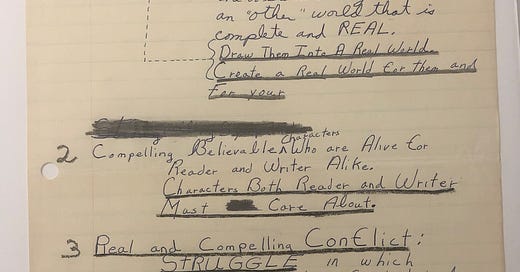 an "other" world that is
complete and REAL.
Draw Them Into A Real World.
Create a Real World for them and
for your
2 Compelling Believable Characters Who are Alive for
Reader and Writer Alike.
Characters Both Reader and Writer
Must Care About.
3 Real and Compelling Conflict:
STRUGGLE in which